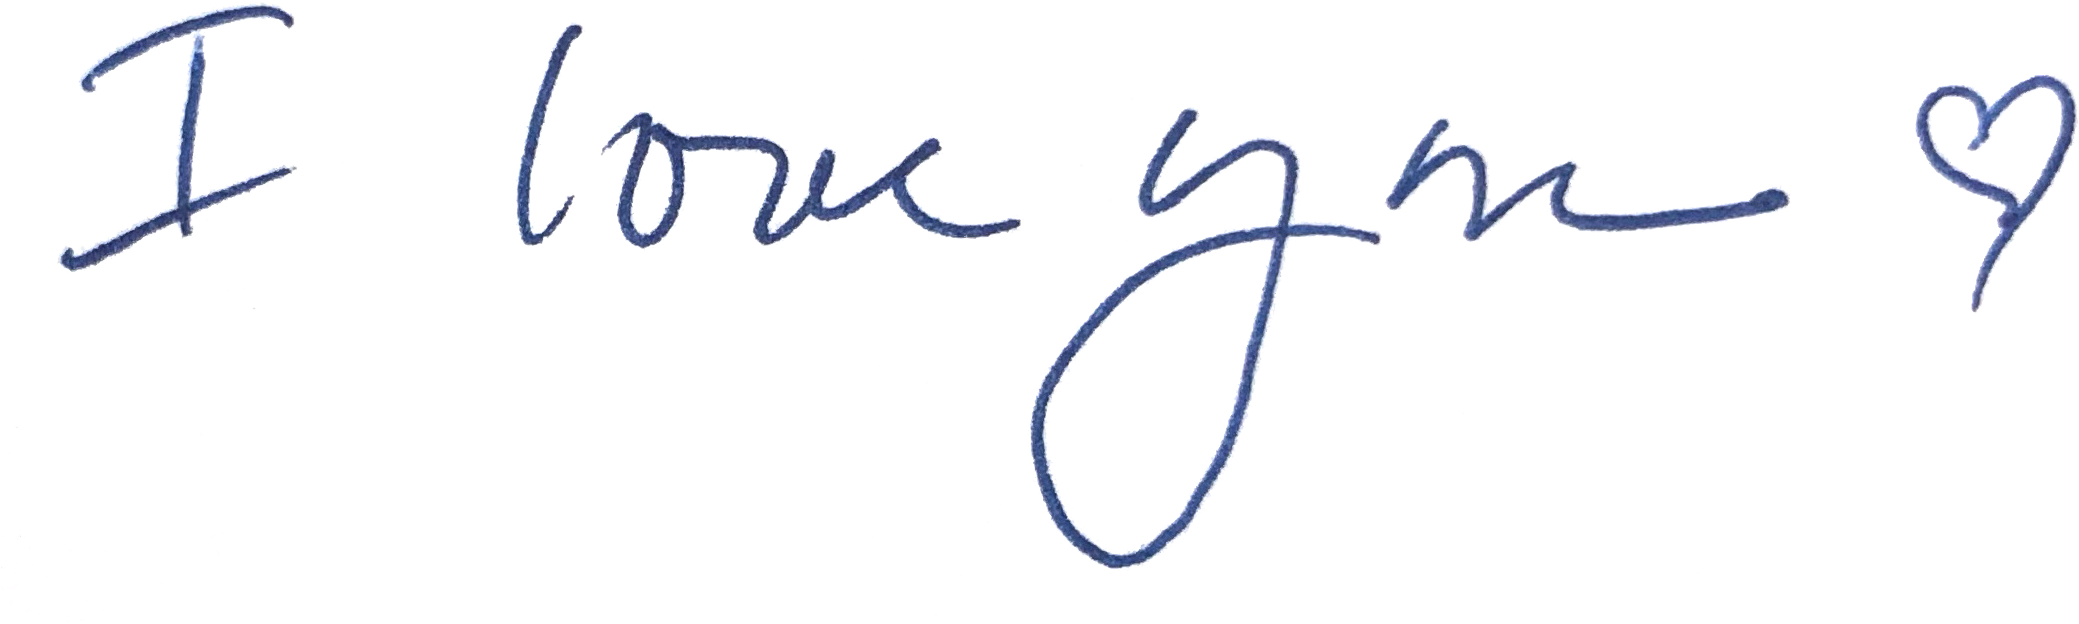 I love you ♡